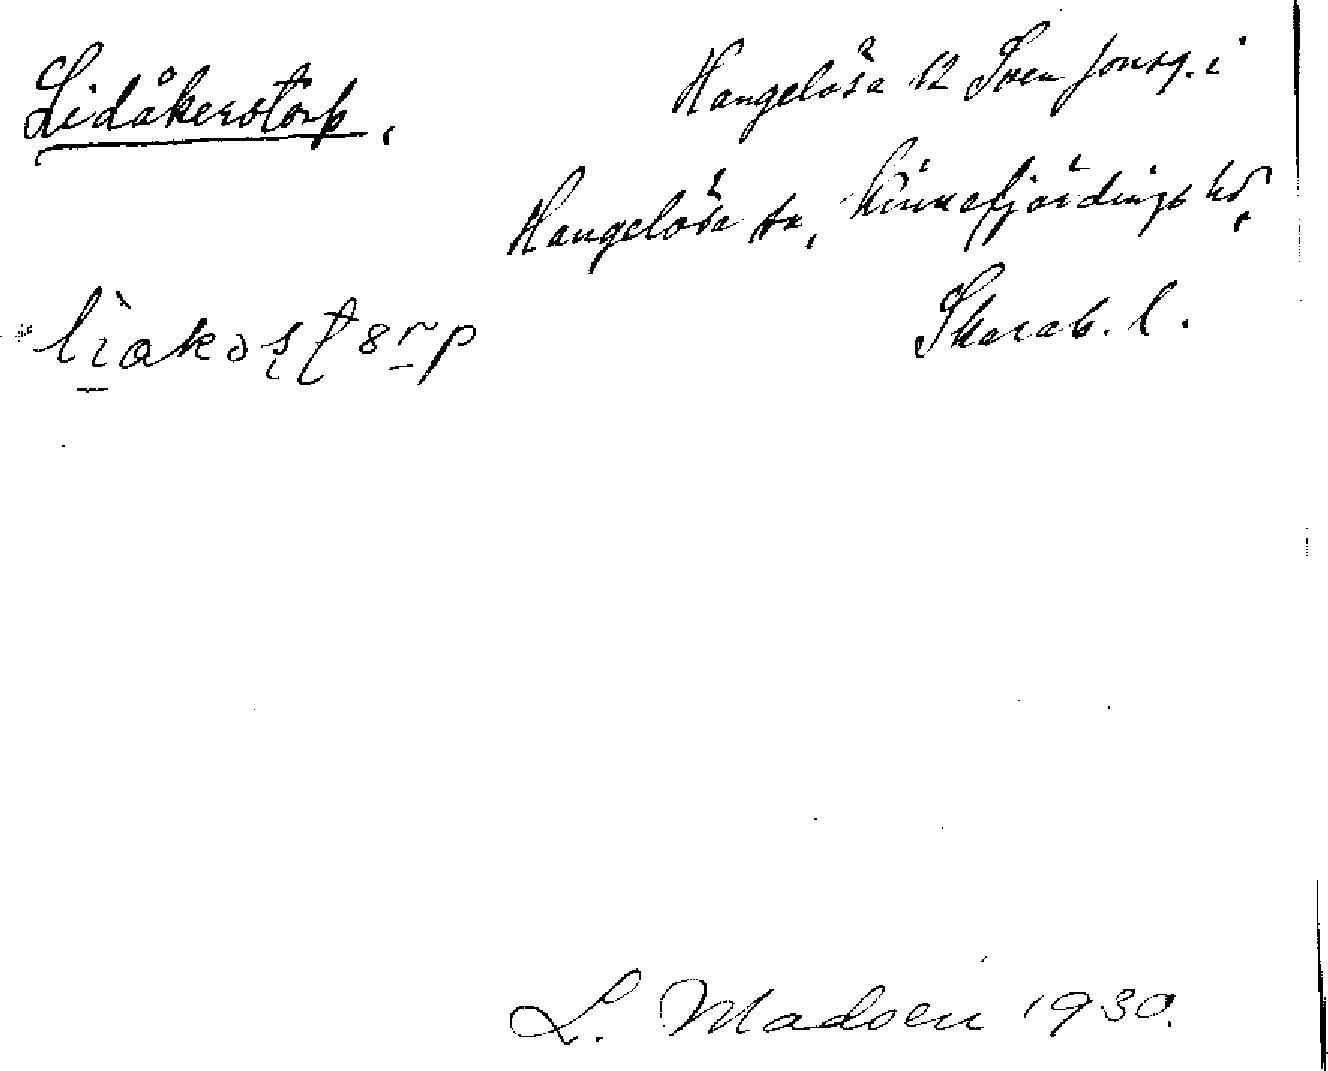 Lidåkerstorp.
Hangelösa 12 Sven Jonsg. i
Hangelösa sn, Kinnefjärdings hd,
Skarab. l.
L. Madsen 1930.